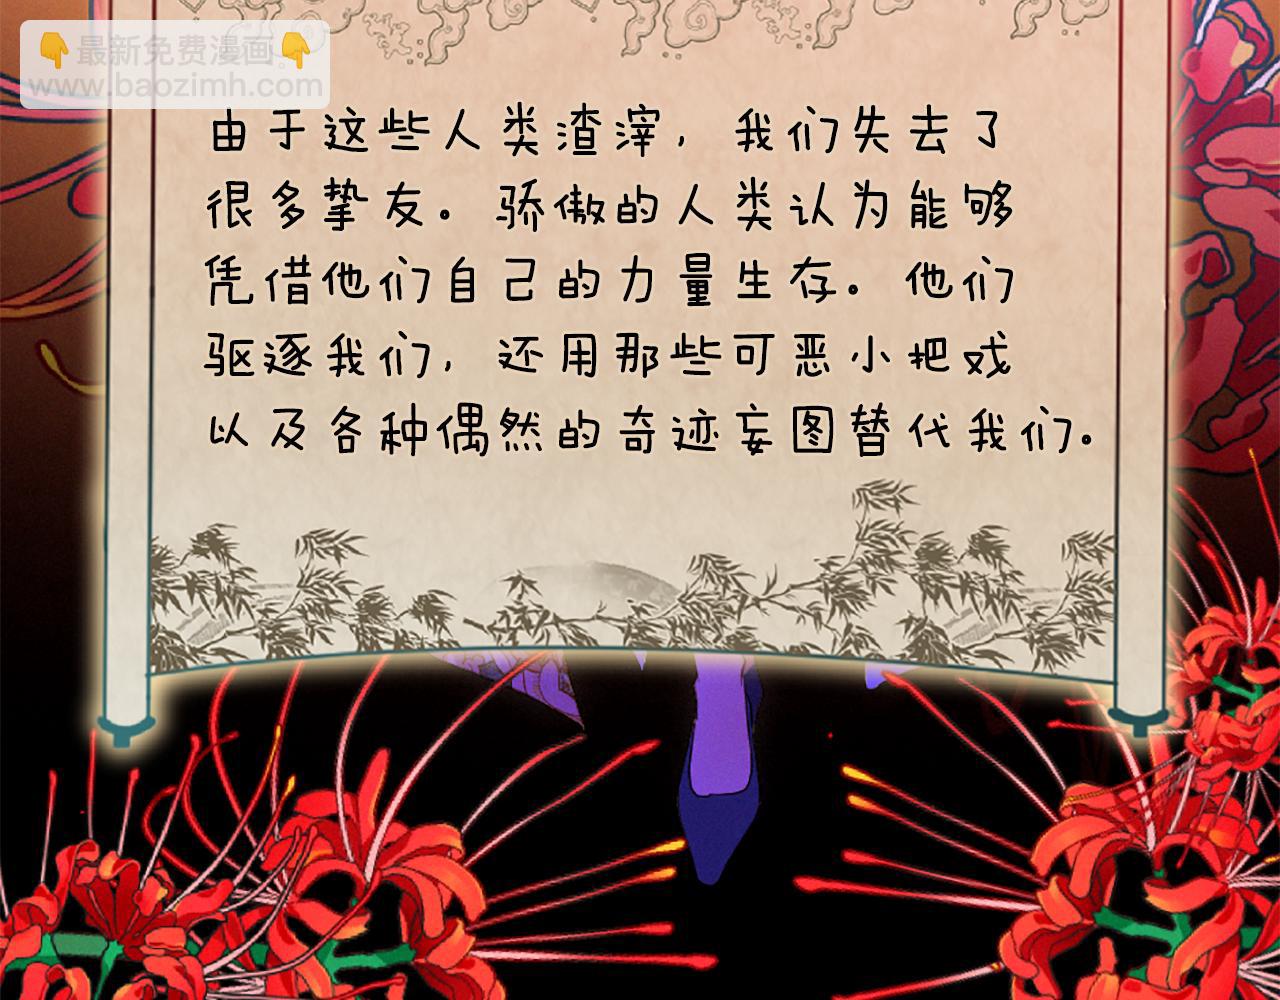 👇最新免费漫画👇
www.baozimh.com
由于这些人类渣滓，我们失去了
很多挚友。骄傲的人类认为能够
凭借他们自己的力量生存。他们
驱逐我们，还用那些可恶小把戏
以及各种偶然的奇迹妄图替代我们。